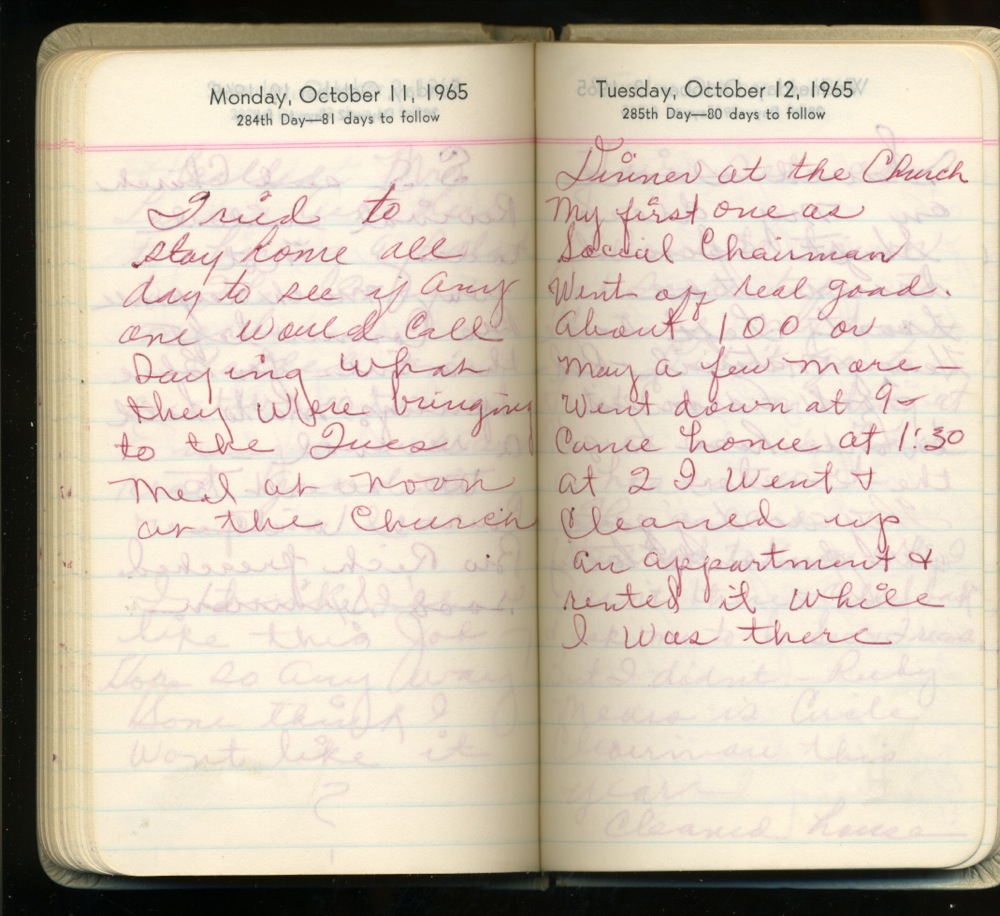 Monday, October 11, 1965
284th Day—81 days to follow
Tried to
stay home all
day to see if any
one would call
Saying what
they were bringing
to the Tues
Meal at noon
at the Church
Tuesday, October 12, 1965
285th Day—80 days to follow
Dinner at the Church
My first one as
Social Chairman
Went off real good.
About 100 or
may a few more –
Went down at 9–
Came home at 1:30
at 2 I Went &
Cleaned up
an appartment &
rented it while
I was there